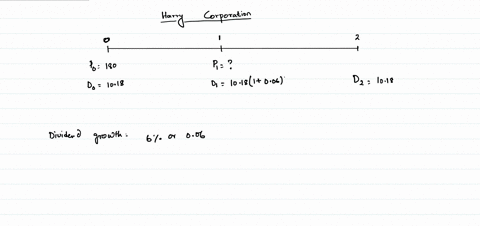 Harry Corporation
0 1 2
P₀: 180 P₁ = ?
D₀ = 10.18 D₁ = 10.18(1+0.06) D₂ = 10.18
Dividend growth: 6% or 0.06